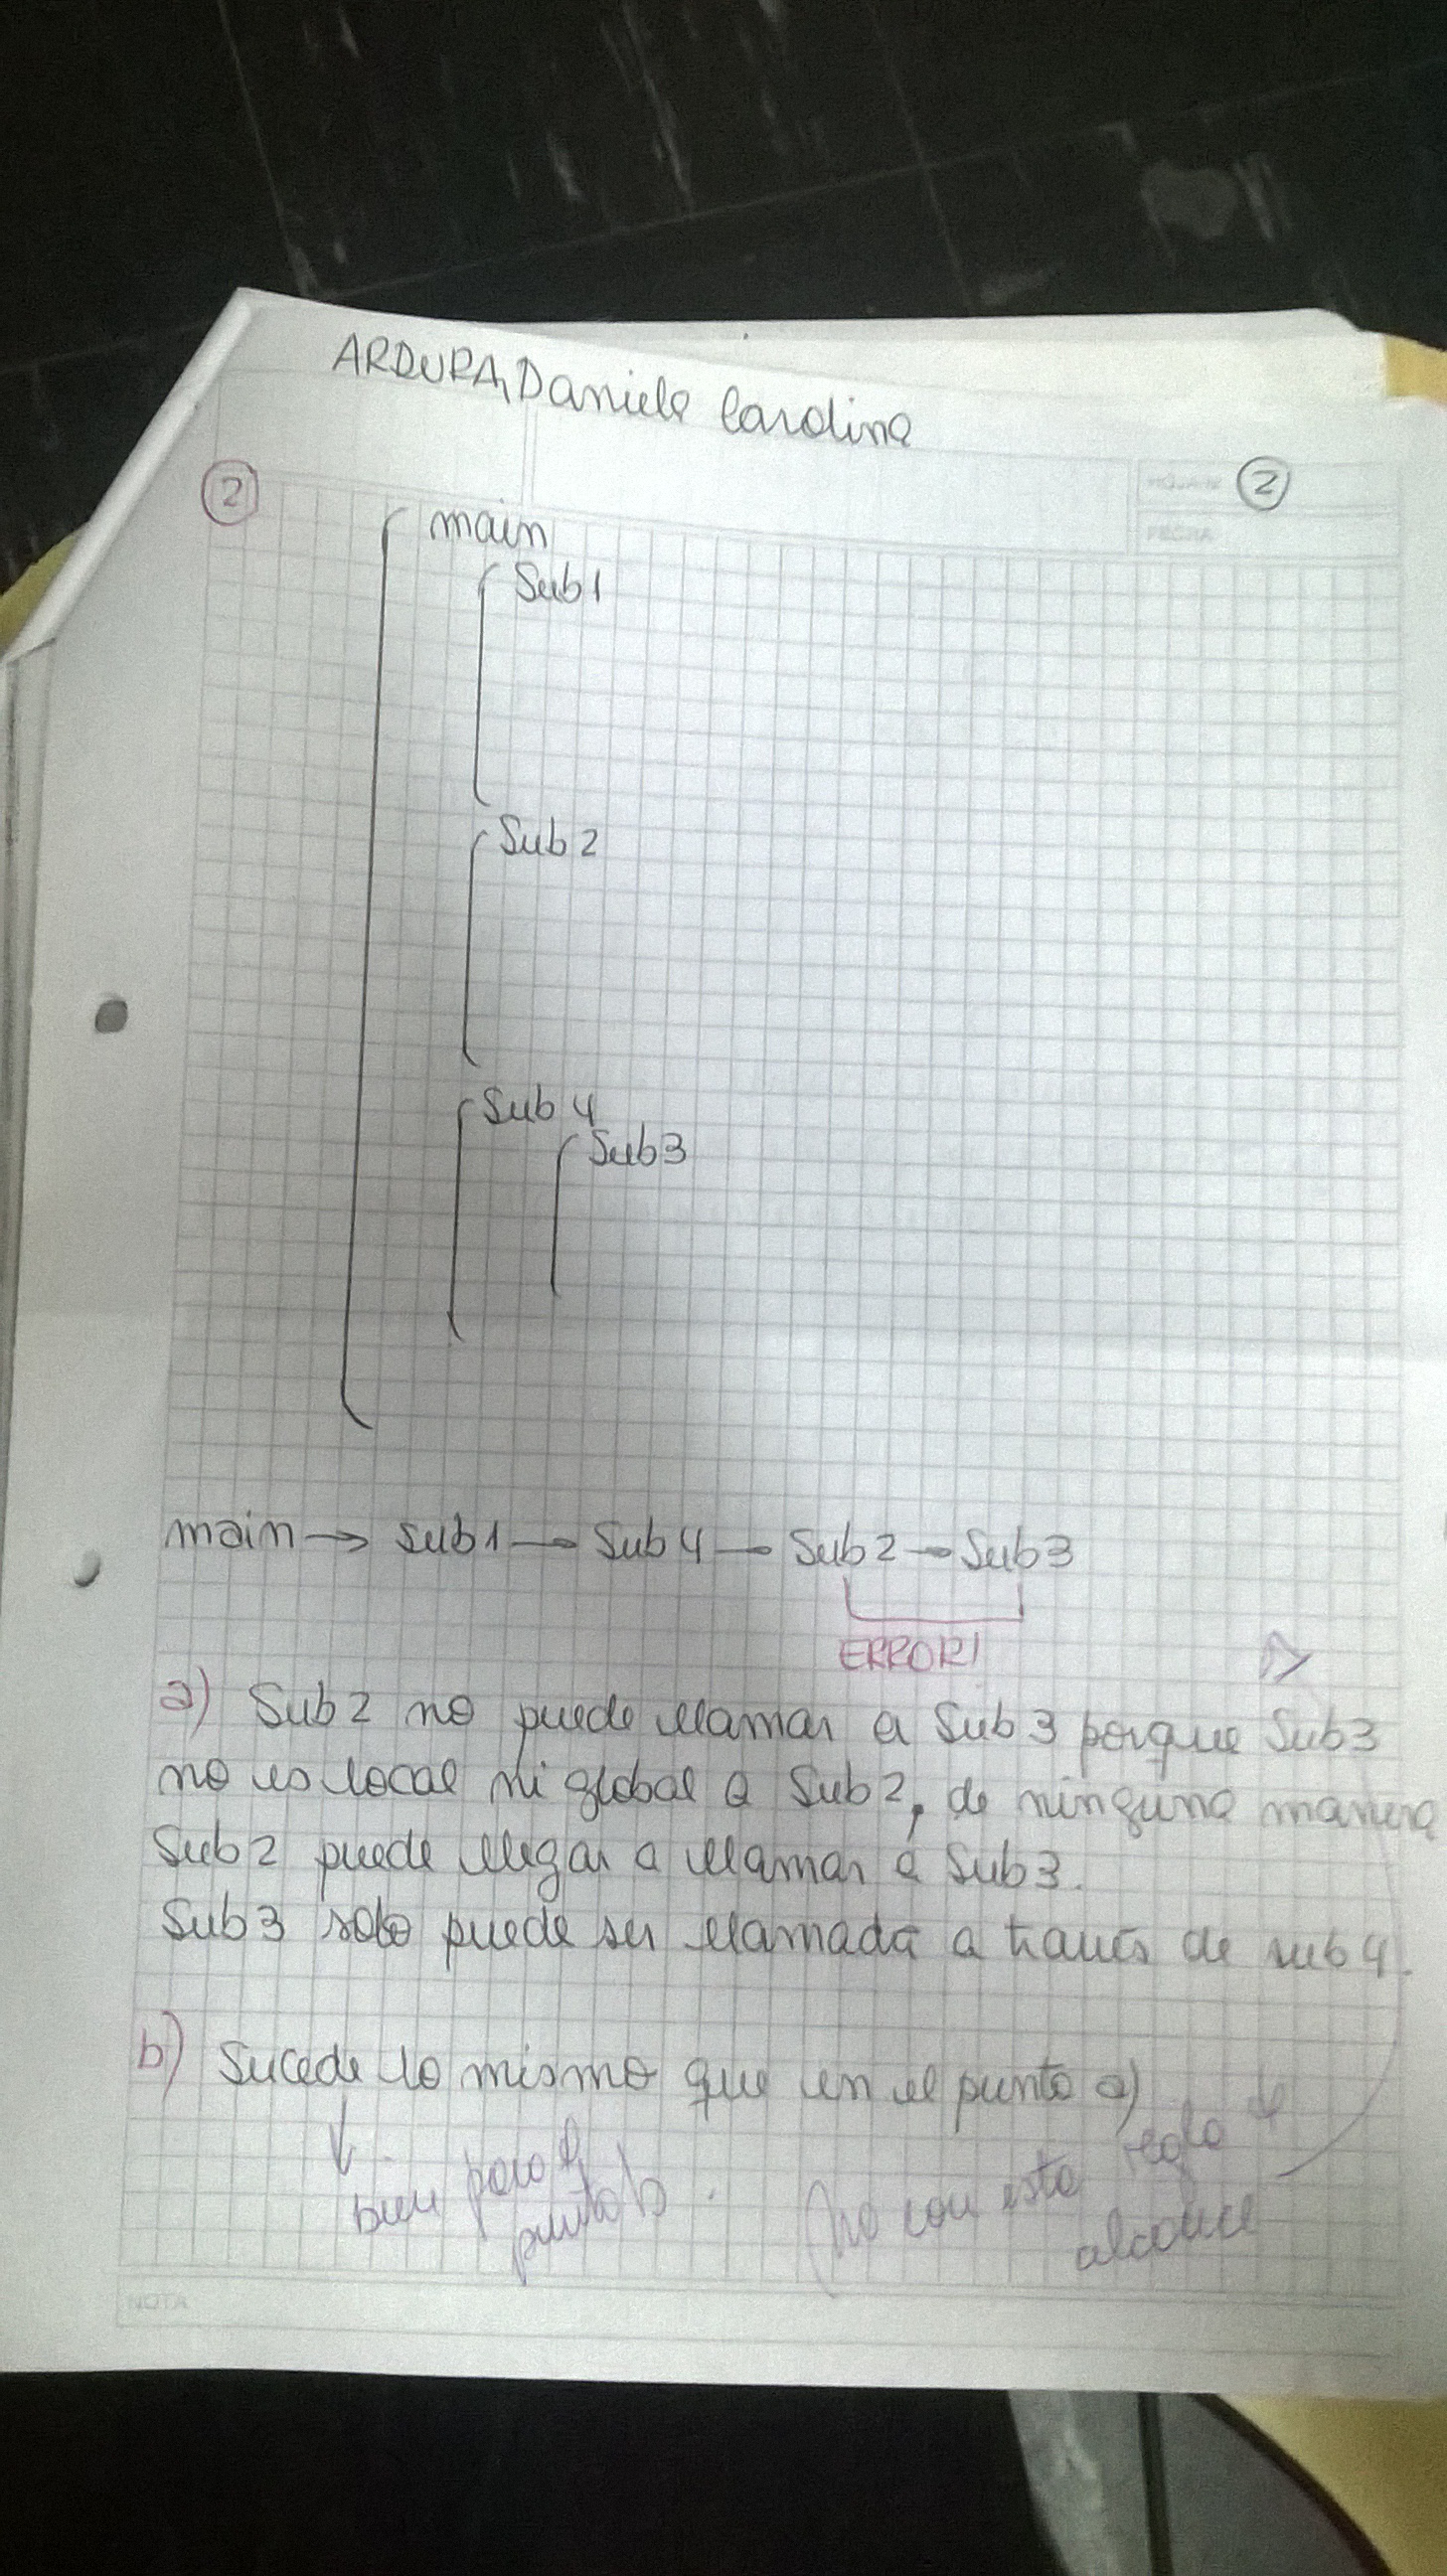 ARDURA, Daniela Carolina
2
HOJA Nº 2
FECHA
main
Sub1
Sub2
Sub4
Sub3
main → Sub1 → Sub4 → Sub2 → Sub3
ERROR!
a) Sub2 no puede llamar a Sub3 porque Sub3
no es local ni global a Sub2, de ninguna manera
Sub2 puede llegar a llamar a Sub3.
Sub3 solo puede ser llamada a través de sub4.
b) Sucede lo mismo que en el punto a)
↓
bien para el
punto b.
no con esta regla de
alcance
NOTA